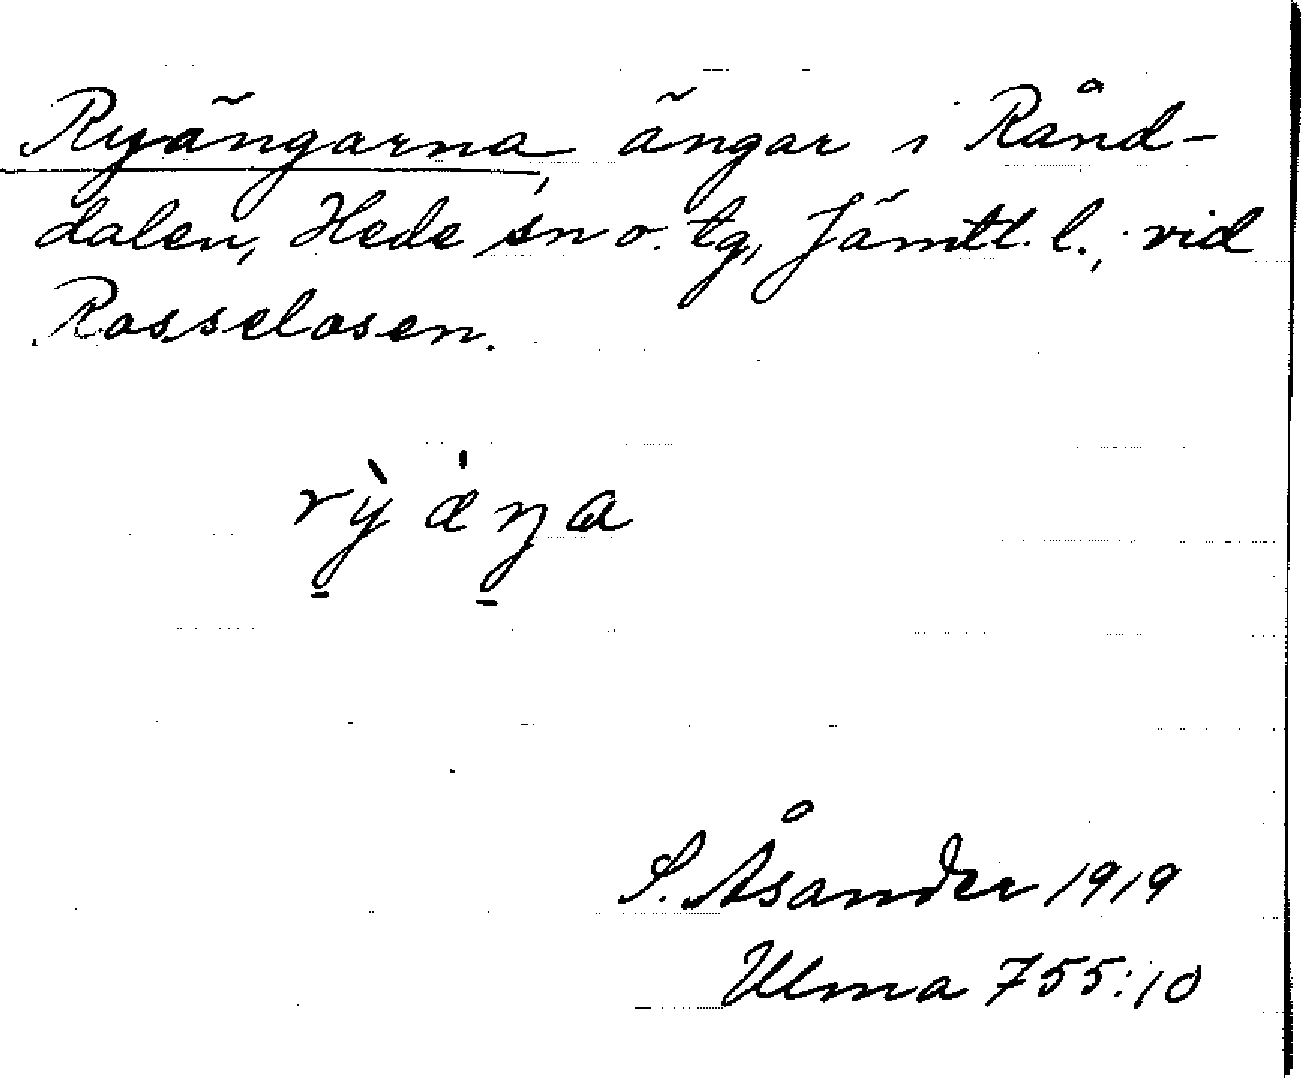 Ryängarna, ängar i Rånd-
dalen, Hede sn o. tg, Jämtl. l., vid
Rosselosen.
rỳæ̀ŋa
S. Åsander 1919
Ulma 755:10